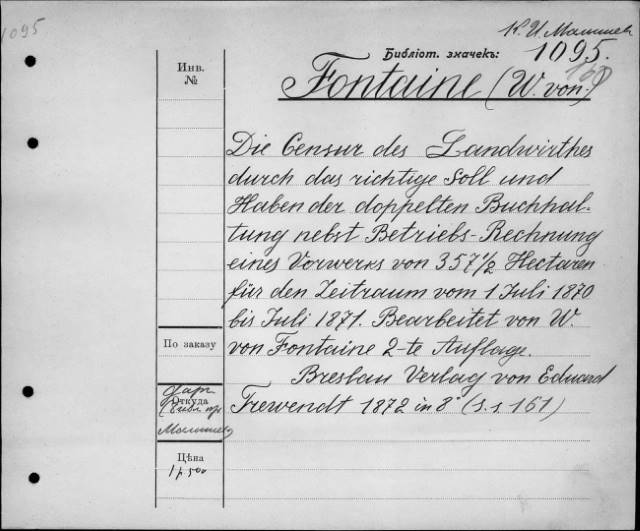 1095
К. И. Малышев
Инв.
№
Библіот. значекъ: 1095.
Fontaine (W. von.)
Die Censur des Landwirthes
durch das richtige Soll und
Haben der doppelten Buchhal-
tung nebst Betriebs-Rechnung
eines Vorwerks von 357 1/2 Hectaren
für den Zeitraum vom 1 Juli 1870
bis Juli 1871. Bearbeitet von W.
По заказу
von Fontaine 2-te Auflage.
Breslau Verlag von Eduard
Дар.
Откуда
Trewendt 1872 in 8° (s.s. 161)
Цѣна
1 р. 500